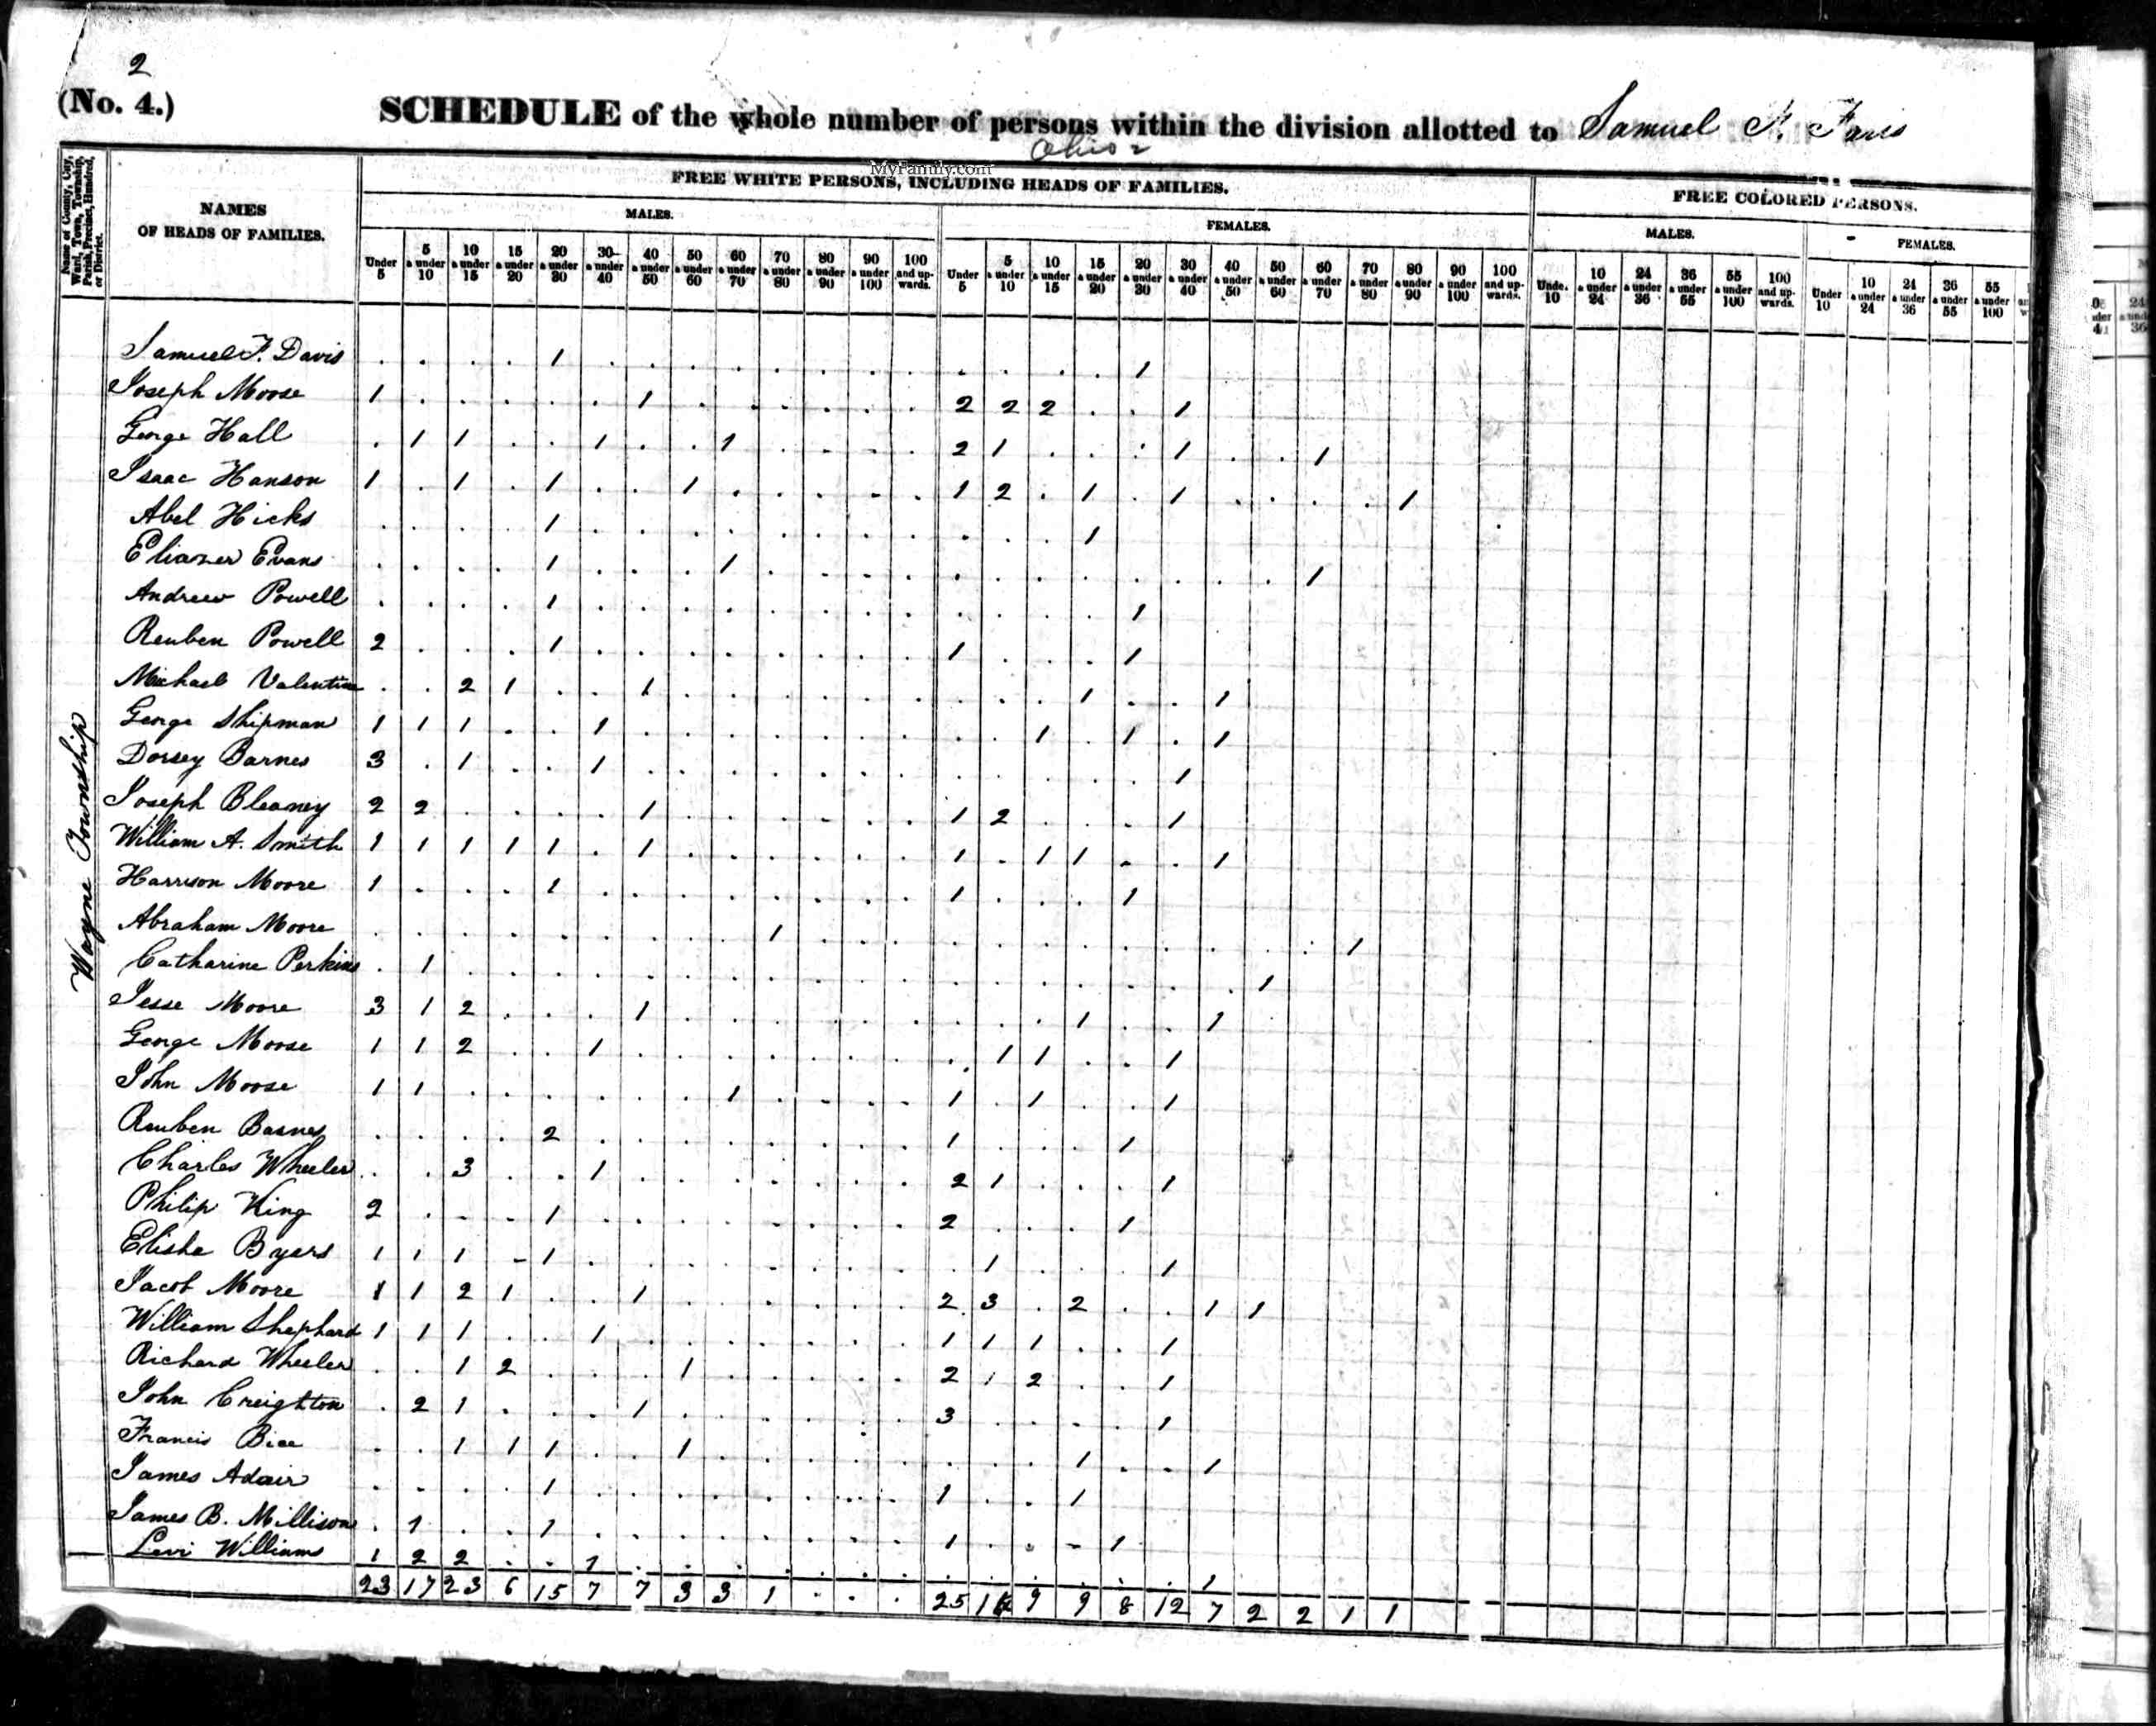 2
(No. 4.)
SCHEDULE of the whole number of persons within the division allotted to Samuel Faris
Ohio
MyFamily.com
Name of County, City, Ward, Town, Township, Parish, Precinct, Hundred, or District.
NAMES OF HEADS OF FAMILIES.
FREE WHITE PERSONS, INCLUDING HEADS OF FAMILIES.
FREE COLORED PERSONS.
MALES.
FEMALES.
MALES.
FEMALES.
Under 5 | 5 & under 10 | 10 & under 15 | 15 & under 20 | 20 & under 30 | 30 & under 40 | 40 & under 50 | 50 & under 60 | 60 & under 70 | 70 & under 80 | 80 & under 90 | 90 & under 100 | 100 and upwards. | Under 5 | 5 & under 10 | 10 & under 15 | 15 & under 20 | 20 & under 30 | 30 & under 40 | 40 & under 50 | 50 & under 60 | 60 & under 70 | 70 & under 80 | 80 & under 90 | 90 & under 100 | 100 and upwards. | Under 10 | 10 & under 24 | 24 & under 36 | 36 & under 55 | 55 & under 100 | 100 and upwards. | Under 10 | 10 & under 24 | 24 & under 36 | 36 & under 55 | 55 & under 100
Wayne Township
Samuel F. Davis 1 1
Joseph Moose 1 1 2 2 2 1
George Hall 1 1 1 1 2 1 1 1
Isaac Hanson 1 1 1 1 1 2 1 1 1
Abel Hicks 1 1
Eliazer Evans 1 1 1
Andrew Powell 1 1
Reuben Powell 2 1 1 1
Michael Valentine 2 1 1 1 1
George Shipman 1 1 1 1 1 1 1
Dorsey Barnes 3 1 1 1
Joseph Bleaney 2 2 1 1 2 1
William A. Smith 1 1 1 1 1 1 1 1 1 1
Harrison Moore 1 1 1 1
Abraham Moore 1 1
Catharine Perkins 1 1
Jesse Moore 3 1 2 1 1 1
George Moose 1 1 2 1 1 1 1
John Moose 1 1 1 1 1 1
Reuben Barnes 2 1 1
Charles Wheeler 3 1 2 1 1
Philip King 2 1 2 1
Elisha Byers 1 1 1 1 1 1
Jacob Moore 1 1 2 1 1 2 3 2 1 1
William Shephard 1 1 1 1 1 1 1 1
Richard Wheeler 1 2 1 2 1 2 1
John Creighton 2 1 1 3 1
Francis Bice 1 1 1 1 1 1
James Adair 1 1 1
James B. Millison 1 1 1 1
Levi Williams 1 2 2 1 1
23 17 23 6 15 7 7 3 3 1 25 9 9 8 12 7 2 2 1 1